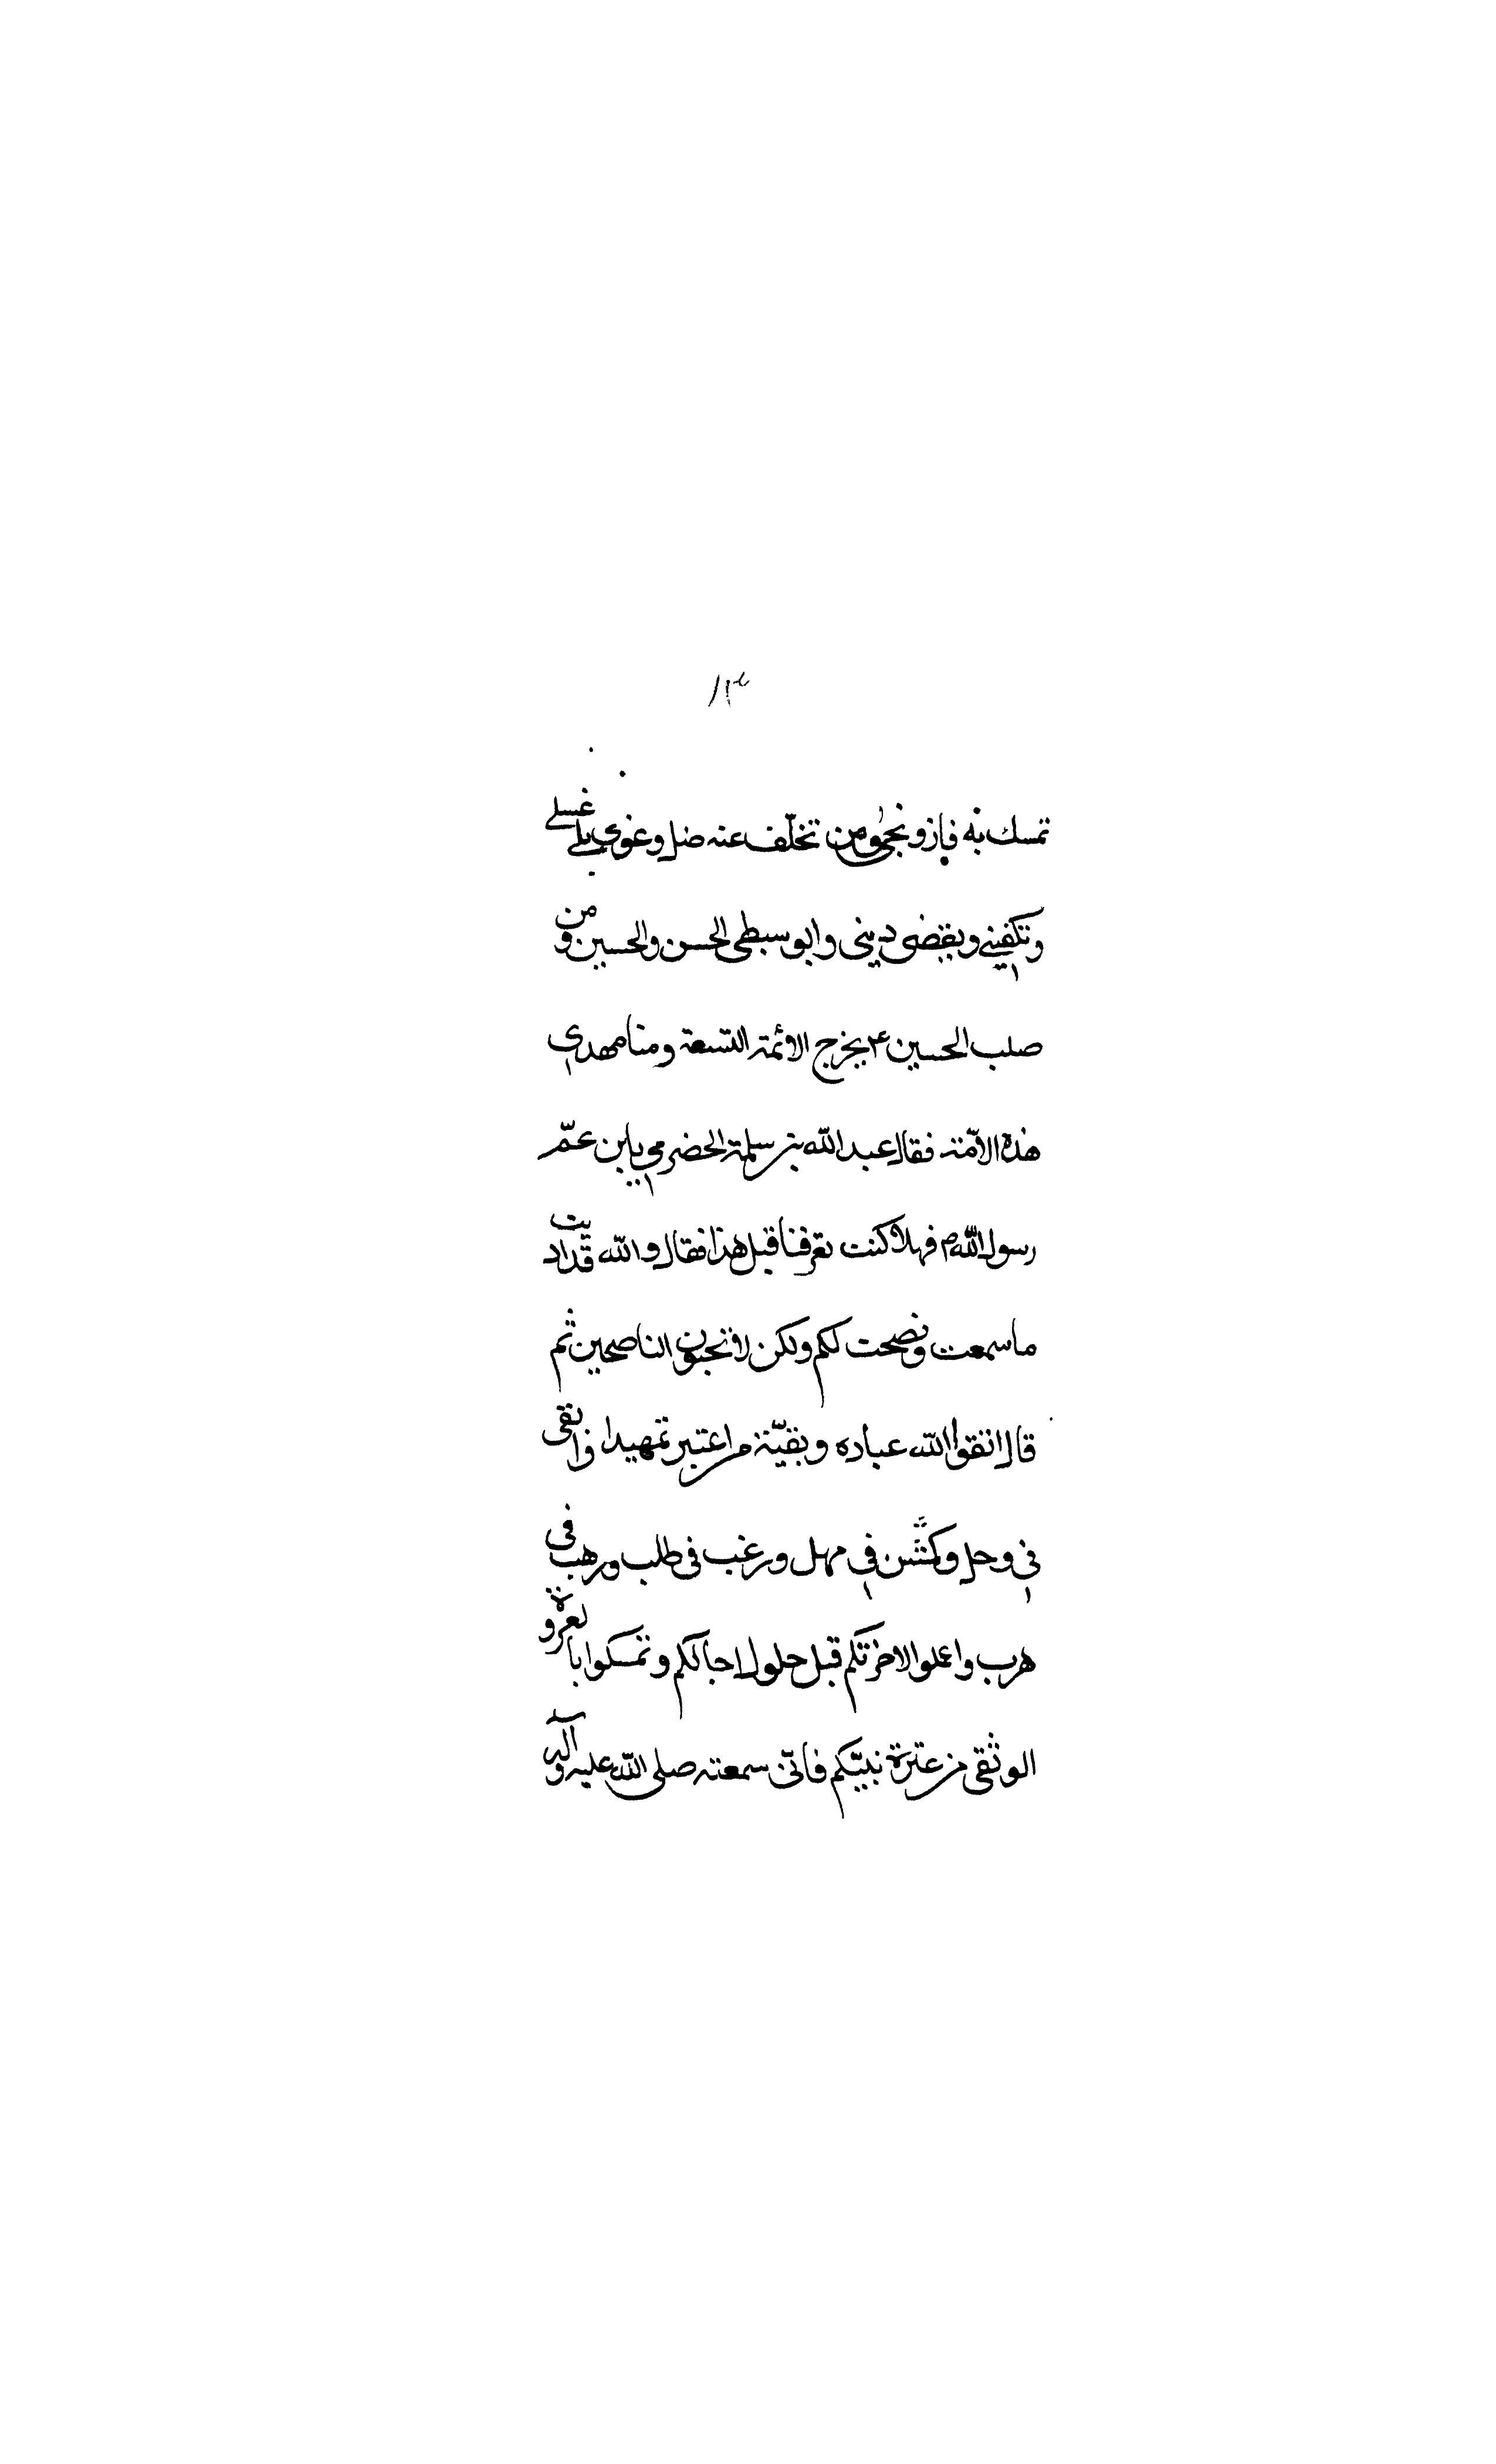 ١٣
تمسك به فاز ونجى ومن تخلّف عنه ضل وغوى يلي غسلي
وتكفيني ويقضى ديني وابو سبطى الحسن والحسين ومن
صلب الحسين ع يخرج الائمة التسعة ومنا مهدي
هذه الامّة فقال عبد الله بن سلمة الحضرمي يابن عمّ
رسول الله ص فهلا كنت تعرفنا قبل هذا فقال والله قد اديت
ما سمعت ونصحت لكم ولكن لا تحبون الناصحين ثم
قال اتقوا الله عباده وبقيّة من اعتبر تمهيدا واتقى
في وحل وكمّش في مهل ورغب في طلب ورهب في
هرب واعملوا لاخرتكم قبل حلول اجالكم وتمسكوا بالعروة
الوثقى من عترة نبيّكم فانّي سمعته صلى الله عليه وآله